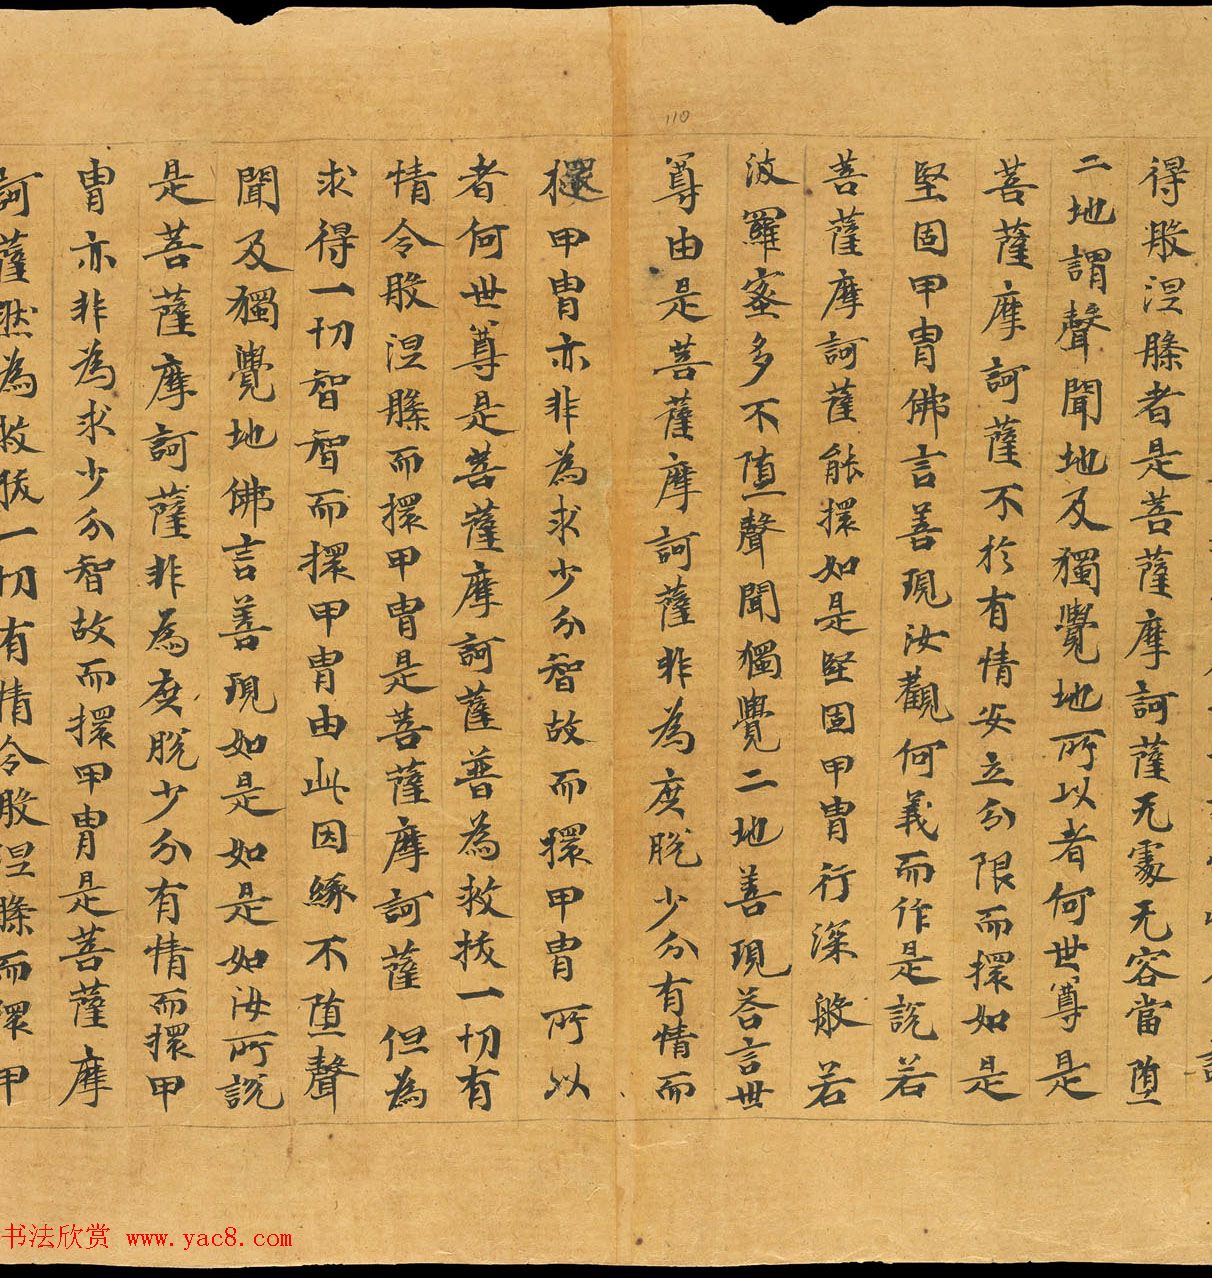 得般涅槃者是菩薩摩訶薩无處无容當堕
二地謂聲聞地及獨覺地所以者何世尊是
菩薩摩訶薩不於有情安立分限而擐如是
堅固甲冑佛言善現汝觀何義而作是說若
菩薩摩訶薩能擐如是堅固甲冑行深般若
波羅蜜多不堕聲聞獨覺二地善現荅言世
尊由是菩薩摩訶薩非為度脫少分有情而
擐甲冑亦非為求少分智故而擐甲冑所以
者何世尊是菩薩摩訶薩普為救拔一切有
情令般涅槃而擐甲冑是菩薩摩訶薩但為
求得一切智智而擐甲冑由此因緣不堕聲
聞及獨覺地佛言善現如是如是如汝所說
是菩薩摩訶薩非為度脫少分有情而擐甲
冑亦非為求少分智故而擐甲冑是菩薩摩
訶薩然為救拔一切有情令般涅槃而擐甲
110
书法欣赏 www.yac8.com